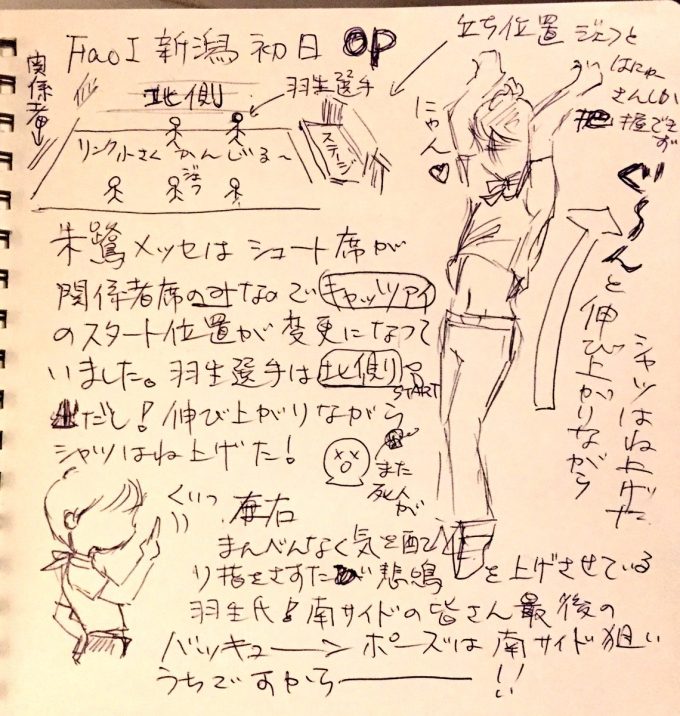 FaoI 新潟 初日 OP
立ち位置 ジェフと
はにゅ
さんしか
把握できず
関係者
北側
羽生選手
リンク小さくかんじる〜
ジェフ
ステージ
にゃん♡
ぐ〜んと伸び上がりながら
シャツはね上げた
朱鷺メッセは ショート席が
関係者席のみなので キャッツアイ
のスタート位置が変更になって
いました。羽生選手は 北側
START
だし！伸び上がりながら
シャツはね上げた！
また
死人が
ぐいっ
左右
まんべんなく気を配
り指をさすた 悲鳴を上げさせている
羽生氏 南サイドの皆さん最後の
バッキューーーン ポーズは 南サイド狙い
うちですから———!!